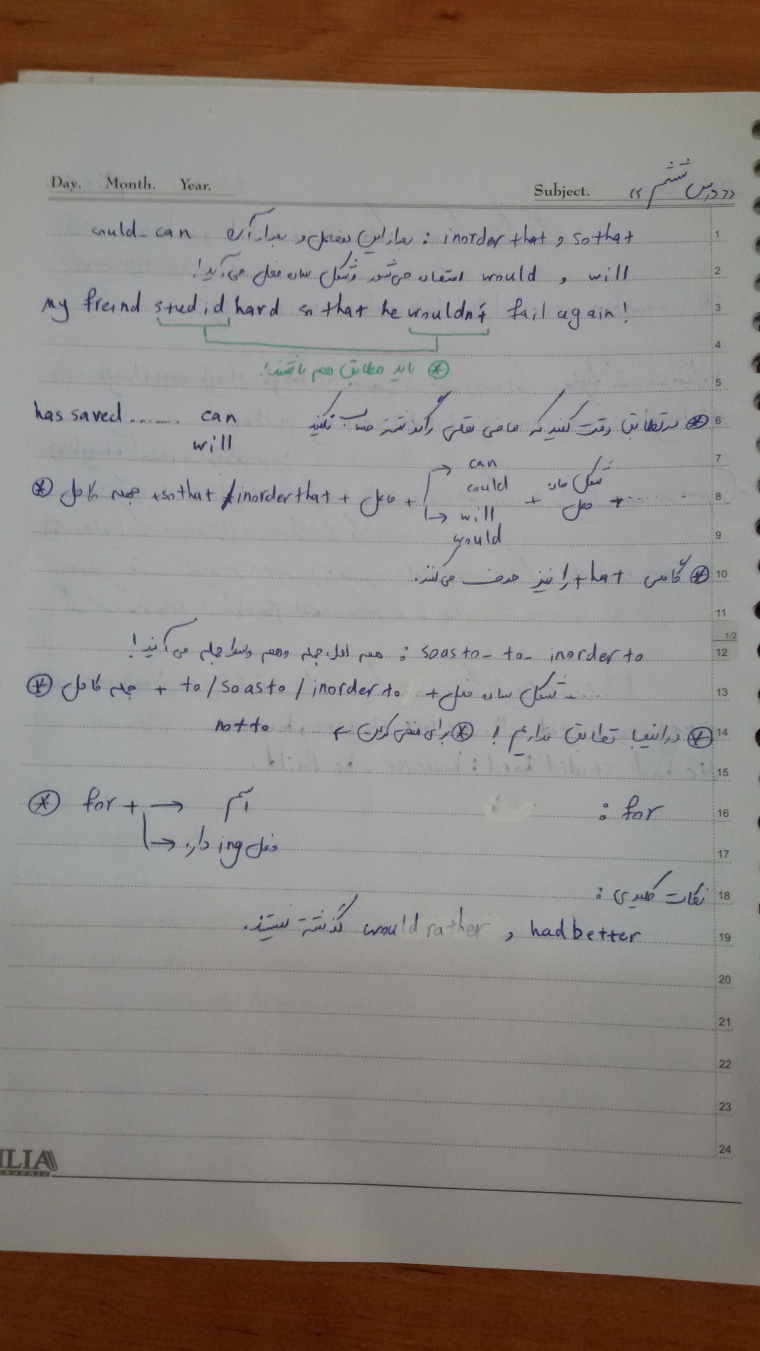 Day. Month. Year. Subject. «درس ششم»
so that و inorder that : بعد از این فاعل و بعد از آن could - can
will و would استفاده می‌شود و شکل ساده فعل می‌آید!
My freind studid hard so that he wouldn't fail again!
⊛ باید مطابق هم باشند!
⊛ در تطابق دقت کنید که ماضی نقلی را گذشته حساب نکنید has saved ....... can
will
can
⊛ جمله کامل + so that / inorder that + فاعل + could + شکل ساده فعل + ......
will
would
⊛ گاهی that را نیز حذف می‌کنند.
inorder to - to - so as to : هم اول جمله و هم وسط جمله می‌آیند!
⊛ جمله کامل + to / so as to / inorder to + شکل ساده فعل ....
⊛ در اینها تطابق نداریم! ⊛ برای منفی کردن not to
for :
⊛ for + → اسم
→ فعل ing دار
نکات کلیدی :
had better و would rather گذشته نیستند.
1
2
3
4
5
6
7
8
9
10
11
1/2
12
13
14
15
16
17
18
19
20
21
22
23
24
ILIA